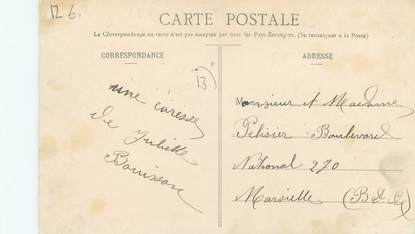 12 6.
CARTE POSTALE
La Correspondance au recto n'est pas acceptée par tous les Pays Étrangers. (Se renseigner à la Poste)
CORRESPONDANCE
13
une caresse
de Juliette
Bouisson
ADRESSE
Monsieur et Madame
Pelisier Boulevard
National 270
Marsielle (B d R)